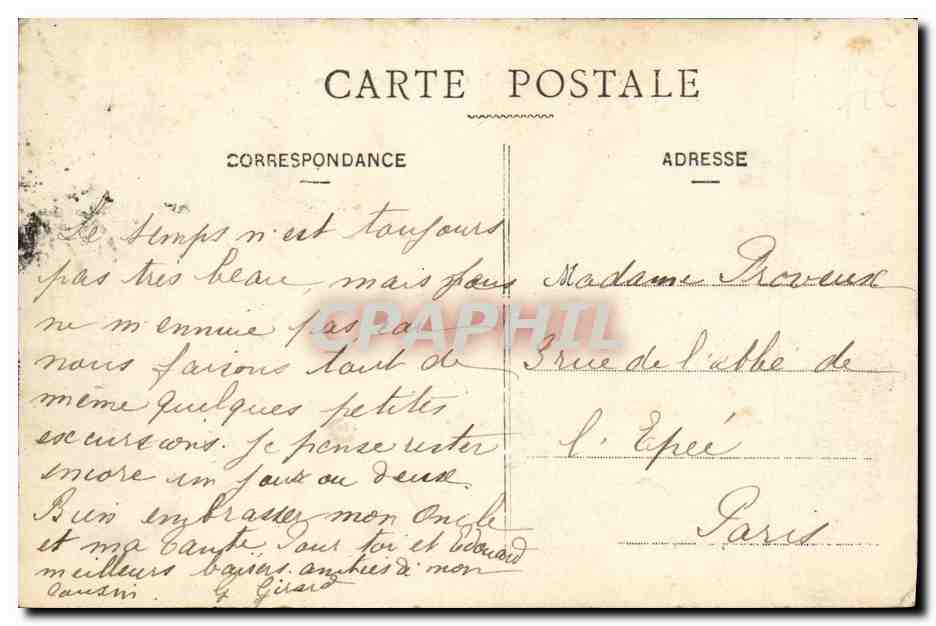 CARTE POSTALE
CORRESPONDANCE
Le temps n'est toujours
pas tres beau, mais je
ne m'ennuie pas car
nous faisons tout de
même quelques petites
excursions. Je pense rester
encore un jour ou deux.
Bien embrasser mon Oncle
et ma Tante Pour toi et Edouard
meilleurs baisers. amities à mon
cousin. G Girard
ADRESSE
Madame Proveux
3 rue de l'abbé de
l'Epeé
Paris
CPAPHIL